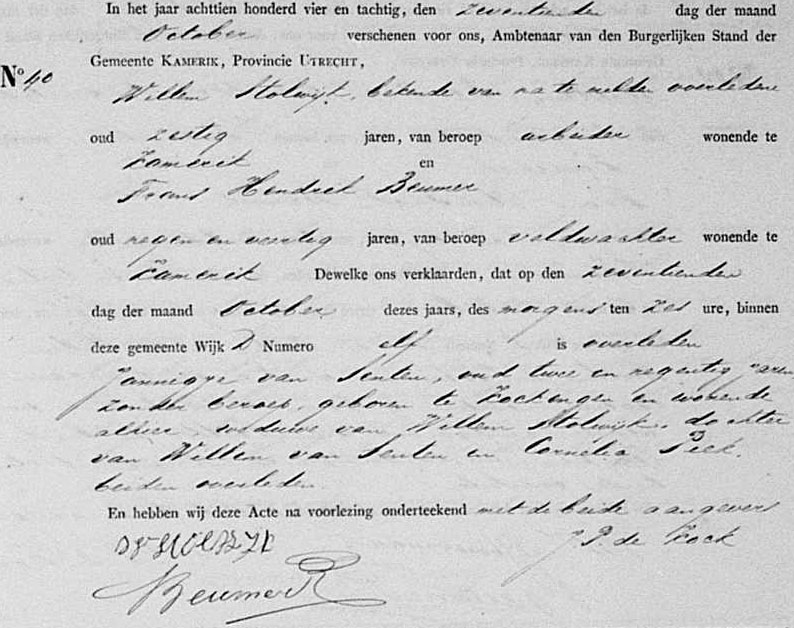 In het jaar achttien honderd vier en tachtig, den zeventienden dag der maand
October verschenen voor ons, Ambtenaar van den Burgerlijken Stand der
Gemeente KAMERIK, Provincie UTRECHT,
No 40
Willem Stolwijk, bekende van na te melden overledene
oud zestig jaren, van beroep arbeider wonende te
Kamerik en
Frans Hendrik Beumer
oud negen en veertig jaren, van beroep veldwachter wonende te
Kamerik Dewelke ons verklaarden, dat op den zeventienden
dag der maand October dezes jaars, des morgens ten zes ure, binnen
deze gemeente Wijk D Numero elf is overleden
Jannigje van Senten, oud twee en negentig jaren
zonder beroep, geboren te Kockengen en wonende
alhier weduwe van Willem Stolwijk, dochter
van Willem van Senten en Cornelia Piek,
beiden overleden.
En hebben wij deze Acte na voorlezing onderteekend met de beide aangevers
J P de Kock
Beumer